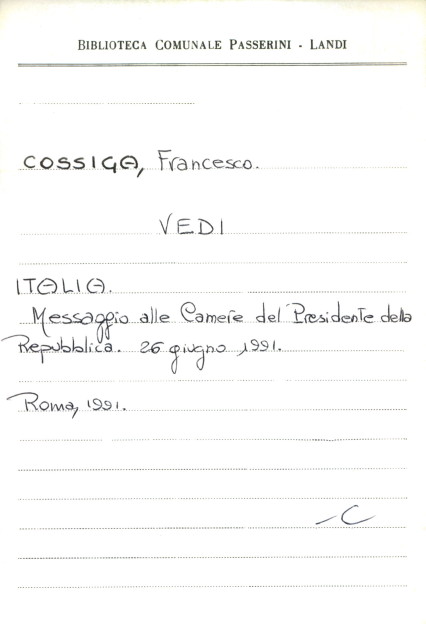 BIBLIOTECA COMUNALE PASSERINI - LANDI
COSSIGA, Francesco.
VEDI
ITALIA.
Messaggio alle Camere del Presidente della
Repubblica. 26 giugno 1991.
Roma, 1991.
-C